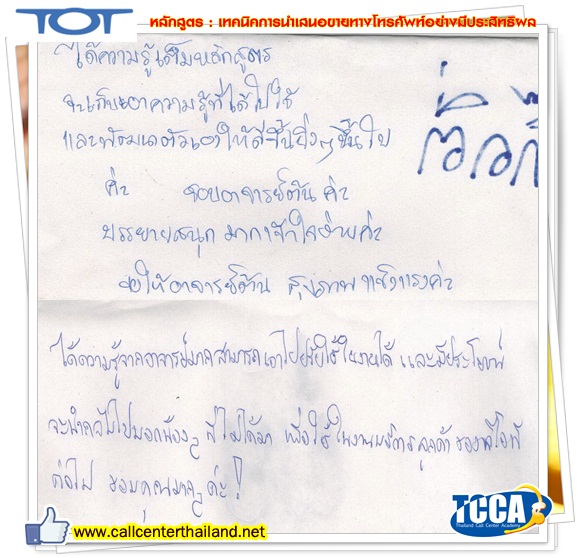 TOT หลักสูตร : เทคนิคการนำเสนอขายทางโทรศัพท์อย่างมีประสิทธิผล
ได้ความรู้เต็มหลักสูตร
จะเก็บเอาความรู้ที่ได้ไปใช้
และพัฒนาตัวเองให้ดีขึ้นยิ่งๆขึ้นไป
ค่ะ ชอบอาจารย์ต้น ค่ะ
บรรยายสนุก มากเข้าใจง่ายค่ะ
ขอให้อาจารย์ต้น สุขภาพแข็งแรงค่ะ
ได้ความรู้จากอาจารย์มากสามารถเอาไปปรับใช้ในงานได้ และมีประโยชน์
จะนำคำไปบอกน้องๆ ที่ไม่ได้มา เพื่อใช้ในงานบริการลูกค้า ของทีโอที
ต่อไป ขอบคุณมากๆค่ะ!
www.callcenterthailand.net
TCCA
Thailand Call Center Academy